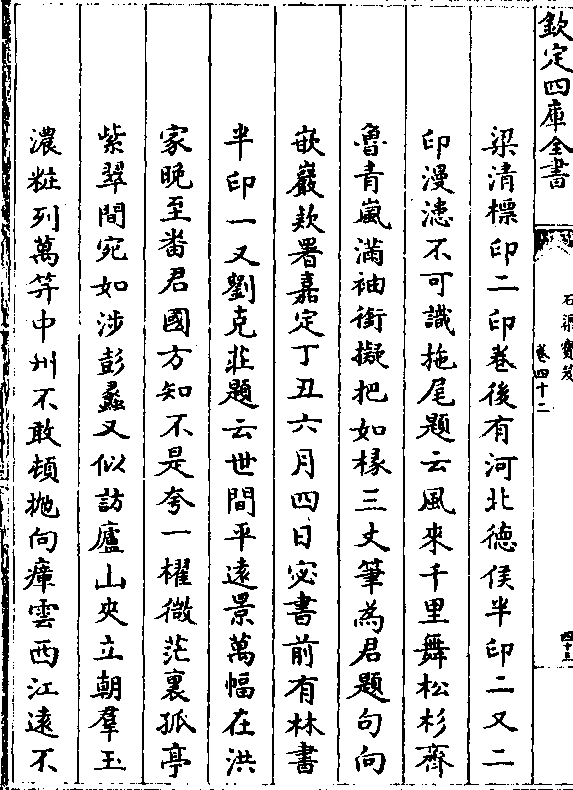 欽定四庫全書
石渠寶笈
卷四十二
四十三
梁清標印二印卷後有河北德侯半印二又二
印漫漶不可識拖尾題云風來千里舞松杉齊
魯青嵐滿袖銜擬把如椽三丈筆為君題句向
嵌巖欵署嘉定丁丑六月四日宓書前有林書
半印一又劉克莊題云世間平遠景萬幅在洪
家晚至畨君國方知不是夸一櫂微茫裏孤亭
紫翠間宛如涉彭蠡又似訪廬山夾立朝羣玉
濃粧列萬笄中州不敢頓拋向瘴雲西江遠不